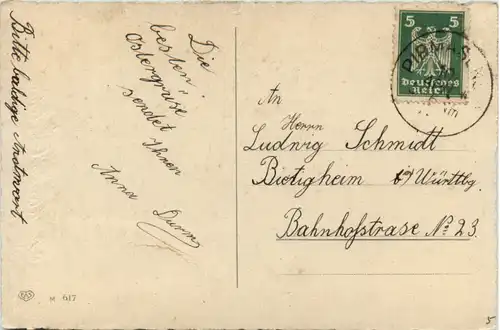 Bitte baldige Antwort
Die
besten
Ostergrüsse
sendet Ihnen
Anna Durm
5 5
Deutsches
Reich
PIRMASENS
An
Herrn
Ludwig Schmidt
Bietigheim b/Württbg.
Bahnhofstrase No 23
M 617
5